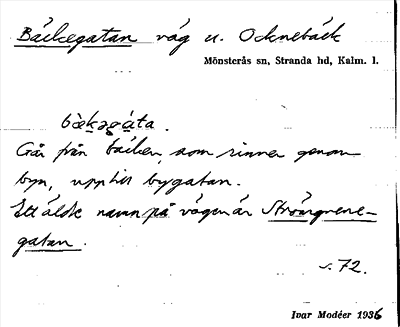 Bäckegatan väg u. Ocknebäck
Mönsterås sn, Stranda hd, Kalm. l.
bækəgáta.
Går från bäcken, som rinner genom
byn, upp till bygatan.
Ett äldre namn på vägen är
gatan.
s. 72.
Ivar Modéer 1936